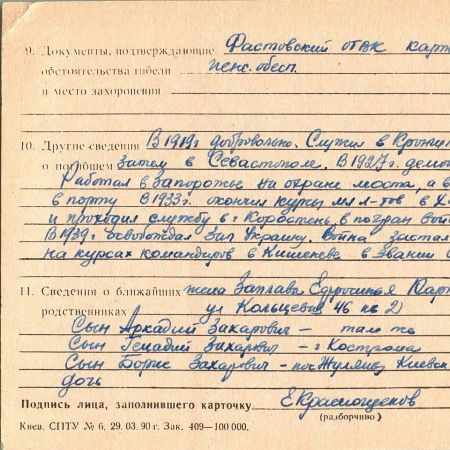 9. Документы, подтверждающие Фастовский ОГВК карт
обстоятельства гибели пенс. обесп.
и место захоронения
10. Другие сведения В 1919г добровольно. Служил в Кронш
о погибшем затем в Севастополе. В 1927г. демо
Работал в Запорожье на охране моста, а в
в порту В 1933г. окончил курсы мл л-тов в Х
и проходил службу в г Коростень, в погран вой
В 1939г освобождал Зап Украину. Война застал
на курсах командиров в Кишеневе в звании
11. Сведения о ближайших жена Заплава Ефросиния Кар
родственниках ул Кольцевая 46 кв 2
Сын Аркадий Захарович – там же
Сын Генадий Захарович – г Кострома
Сын Борис Захарович – пос Жуляны Киевск
дочь
Подпись лица, заполнившего карточку ЕКрасно
(разборчиво)
Киев. СПТУ № 6, 29. 03. 90 г. Зак. 409—100 000.